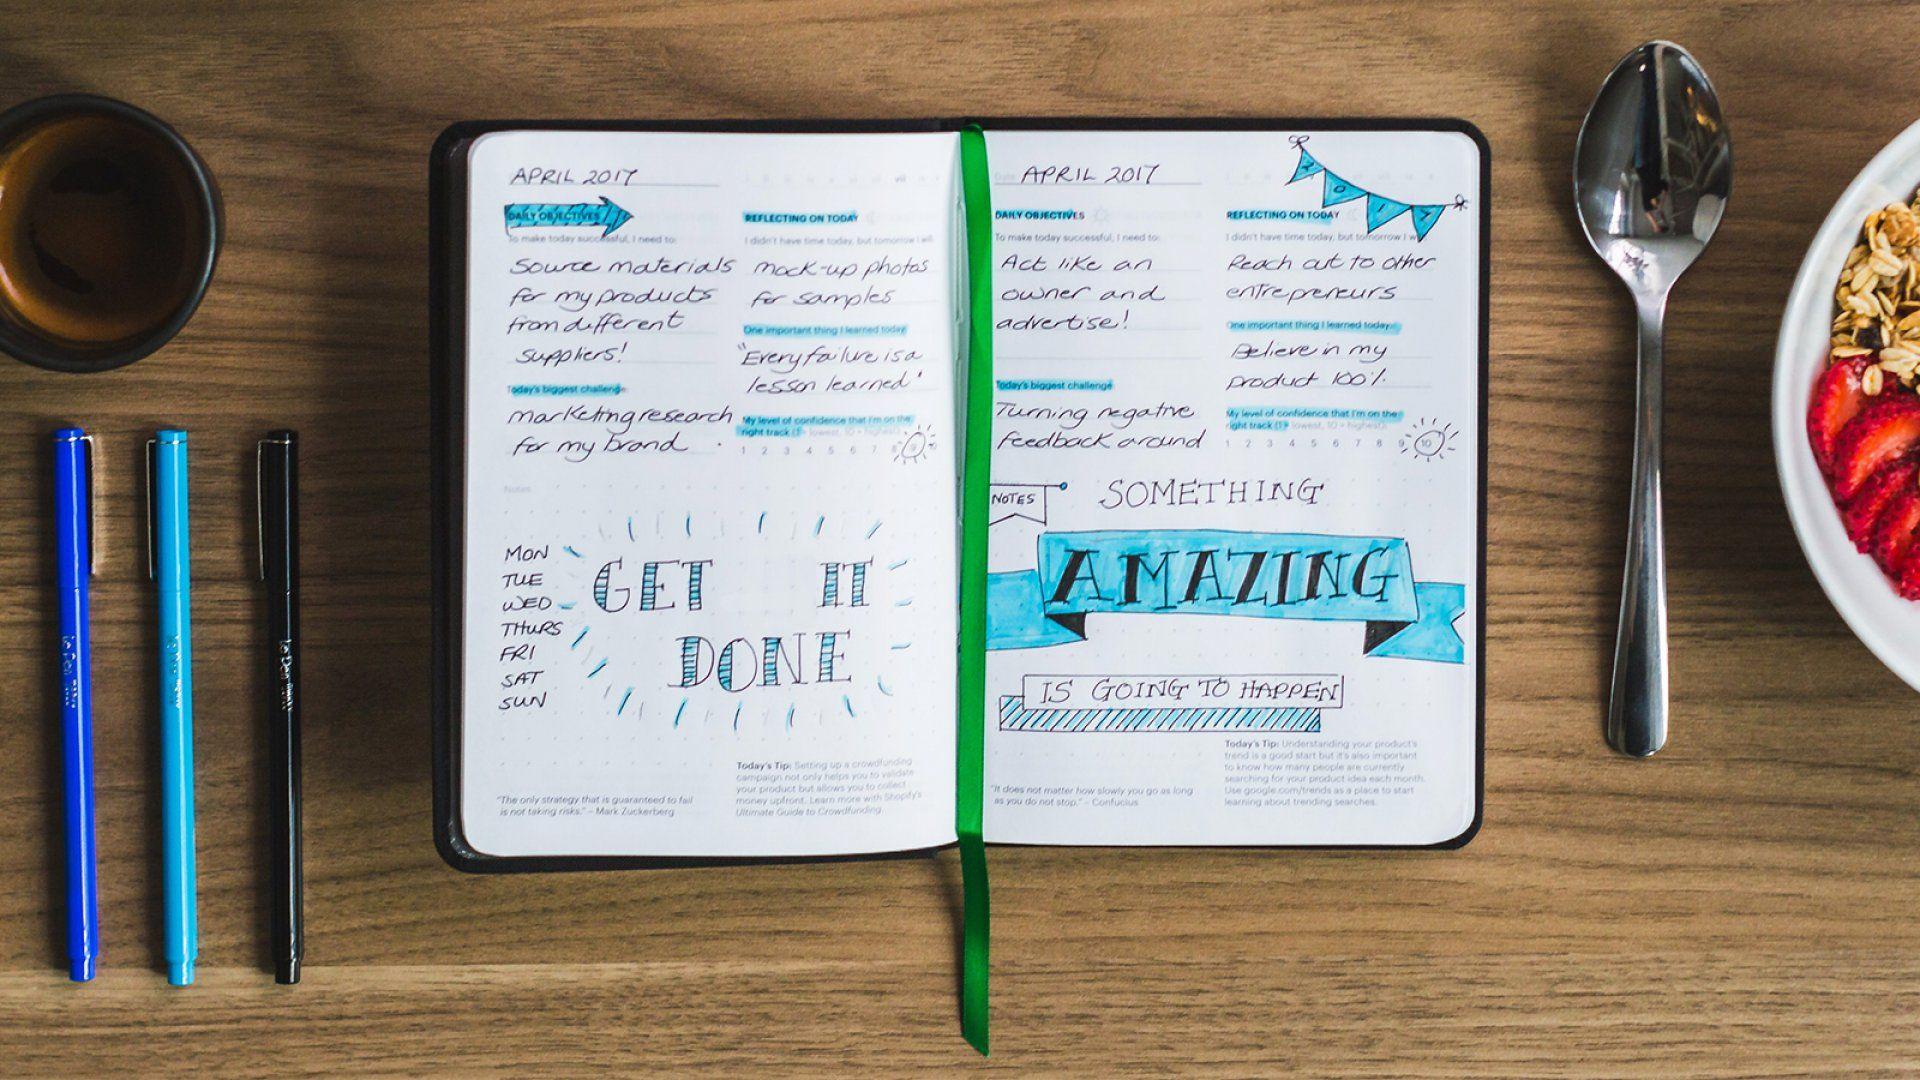 APRIL 2017
DAILY OBJECTIVES
To make today successful, I need to:
Source materials
for my products
from different
suppliers!
Today's biggest challenge
marketing research
for my brand
REFLECTING ON TODAY
I didn't have time today, but tomorrow I will:
mock-up photos
for samples
One important thing I learned today
"Every failure is a
lesson learned"
My level of confidence that I'm on the
right track (1 = lowest, 10 = highest)
1 2 3 4 5 6 7 8 9 10
Notes
MON
TUE
WED
THURS
FRI
SAT
SUN
GET IT
DONE
"The only strategy that is guaranteed to fail
is not taking risks." – Mark Zuckerberg
Today's Tip: Setting up a crowdfunding
campaign not only helps you to validate
your product but allows you to collect
money upfront. Learn more with Shopify's
Ultimate Guide to Crowdfunding.
Date:
APRIL 2017
2017
DAILY OBJECTIVES
To make today successful, I need to:
Act like an
owner and
advertise!
Today's biggest challenge
Turning negative
feedback around
REFLECTING ON TODAY
I didn't have time today, but tomorrow I w
Reach out to other
entrepreneurs
One important thing I learned today
Believe in my
product 100%
My level of confidence that I'm on the
right track (1 = lowest, 10 = highest)
1 2 3 4 5 6 7 8 9 10
NOTES
SOMETHING
AMAZING
IS GOING TO HAPPEN
"It does not matter how slowly you go as long
as you do not stop." – Confucius
Today's Tip: Understanding your product's
trend is a good start but it's also important
to know how many people are currently
searching for your product idea each month.
Use google.com/trends as a place to start
learning about trending searches.
Le Pen
Le Pen
Le Pen